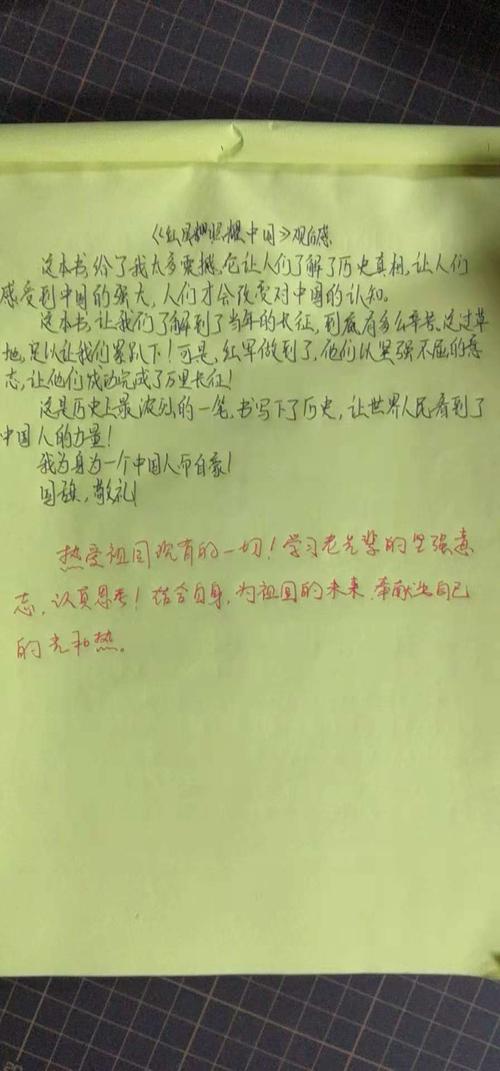 《红星照耀中国》观后感
这本书,给了我太多震撼,它让人们了解了历史真相,让人们
感受到中国的强大,人们才会改变对中国的认知。
这本书,让我们了解到了当年的长征,到底有多么辛苦,这过草
地,足以让我们累趴下!可是,红军做到了,他们以坚强不屈的意
志,让他们成功完成了万里长征!
这是历史上最浓烈的一笔,书写下了历史,让世界人民看到了
中国人的力量!
我为身为一个中国人而自豪!
国旗,敬礼!
热爱祖国现有的一切!学习老先辈的坚强意
志,认真思考!结合自身,为祖国的未来,奉献出自己
的光和热。